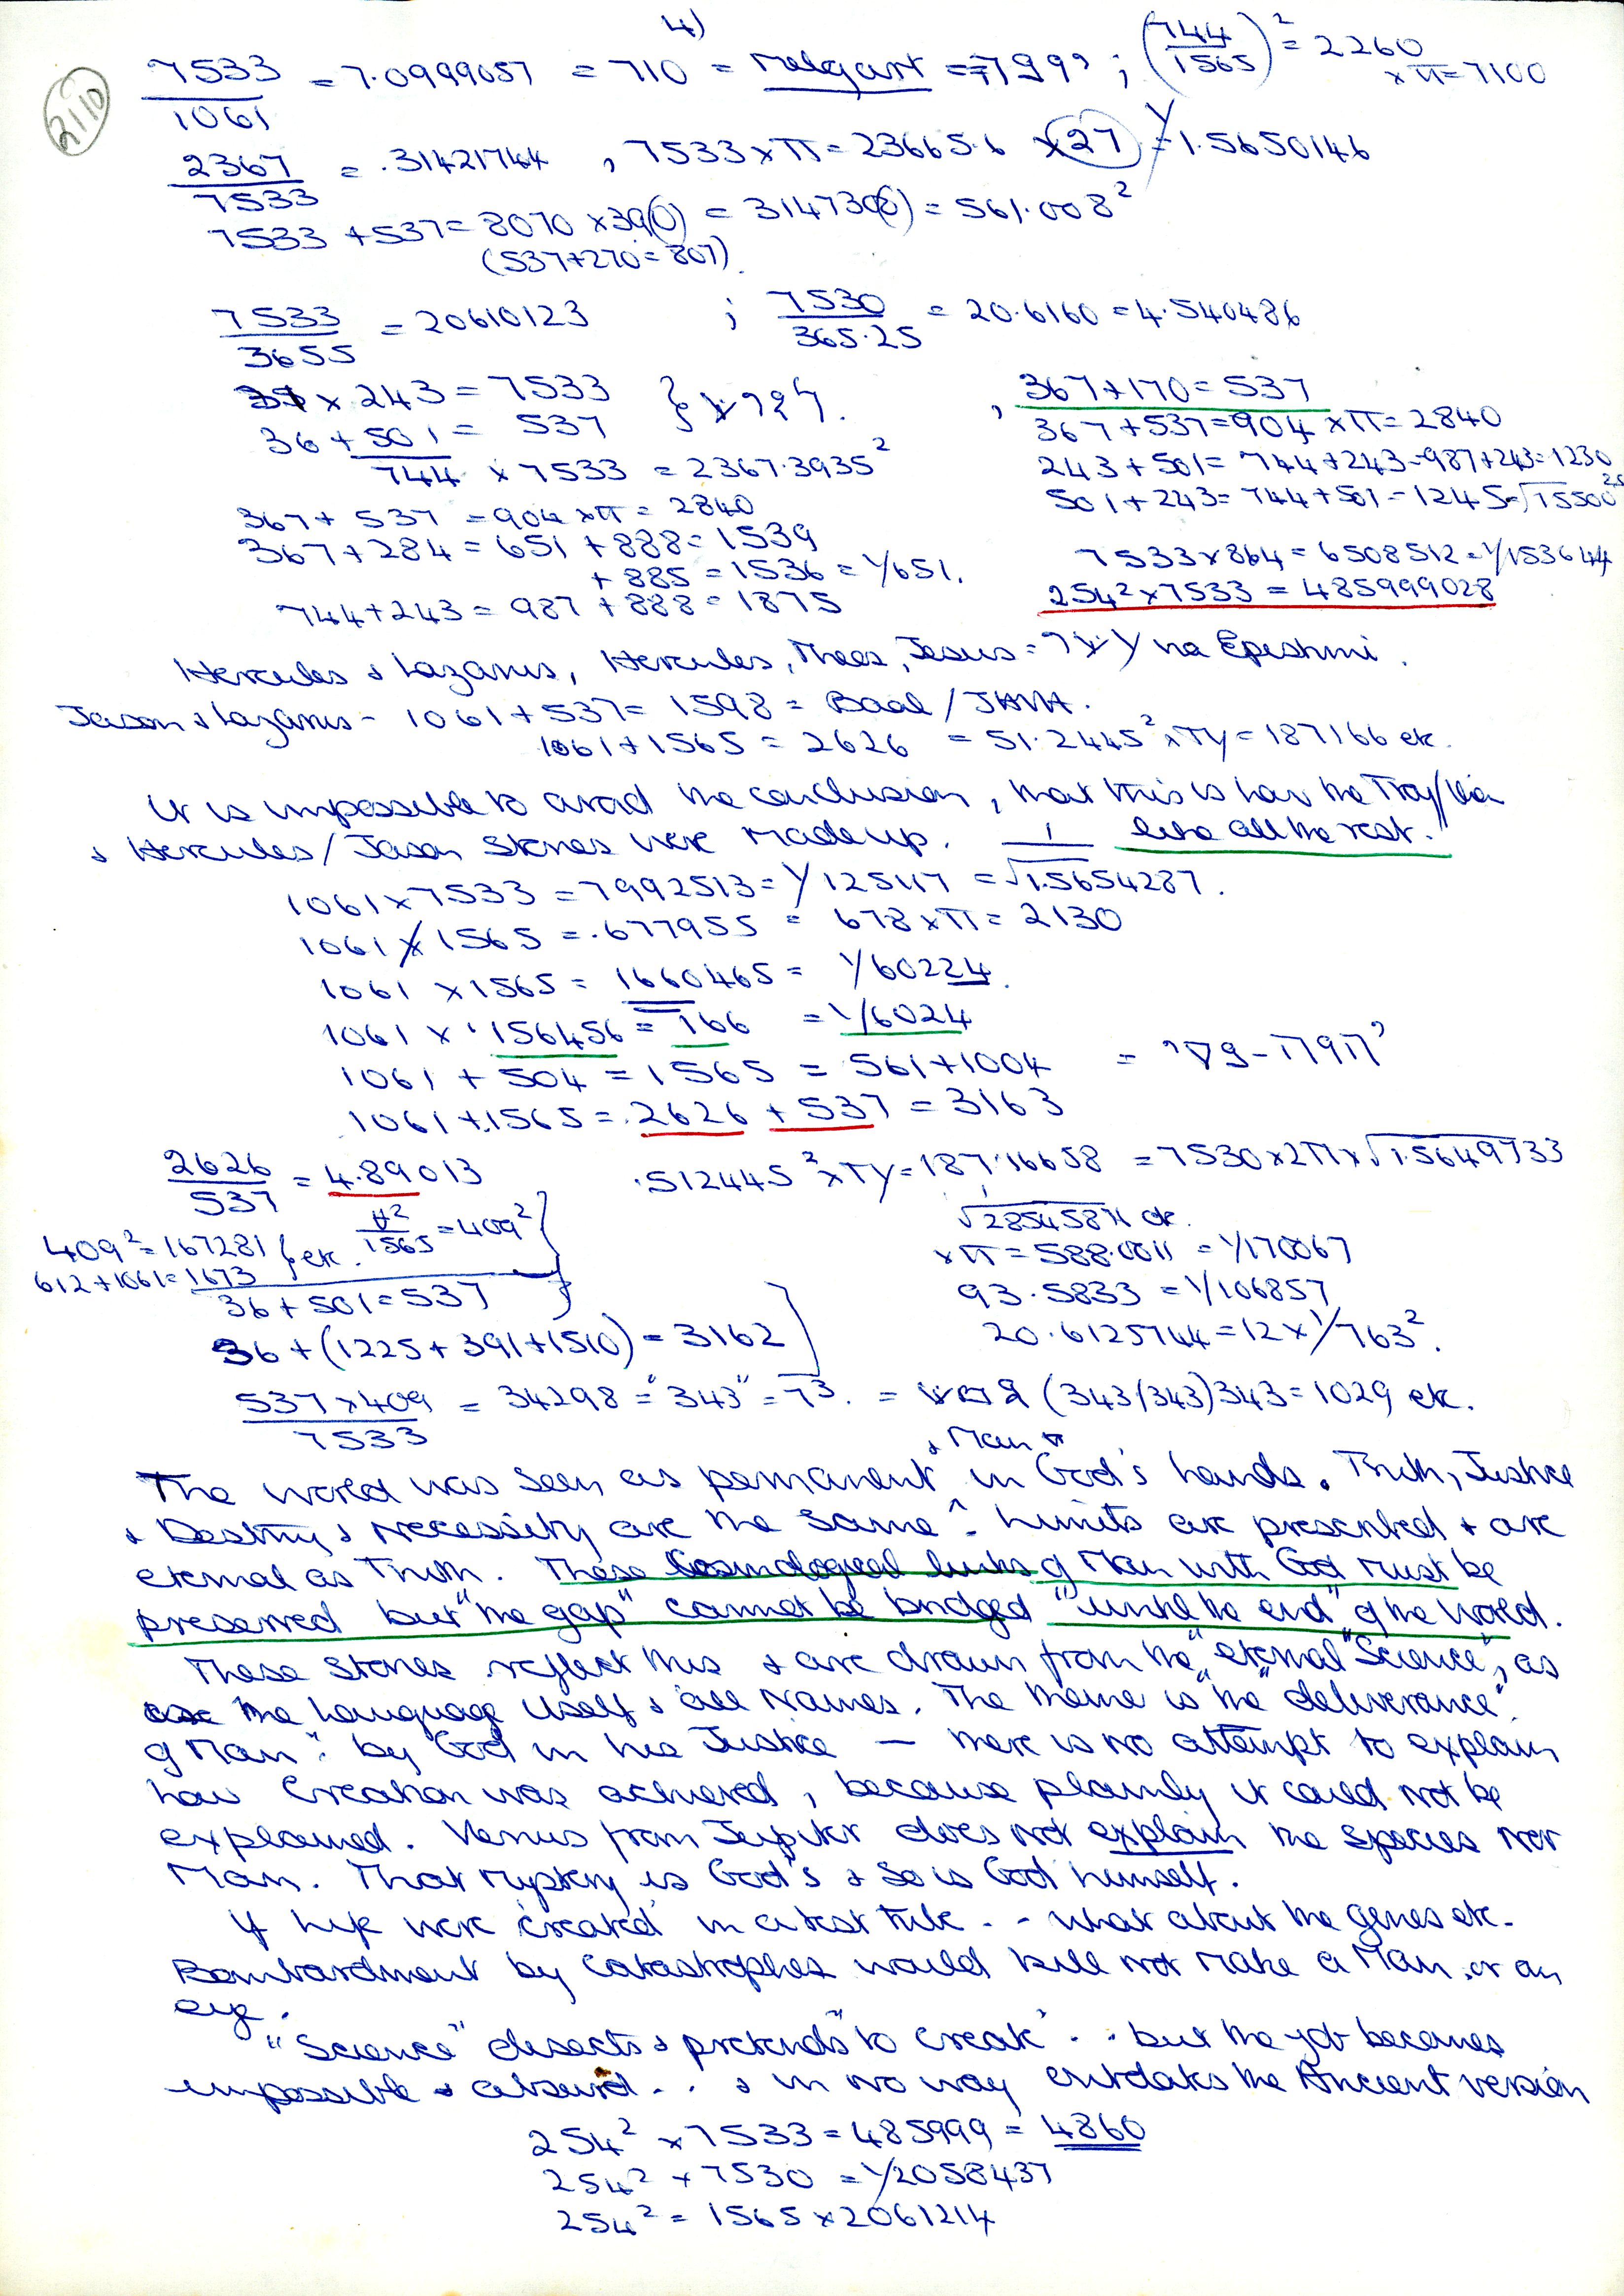 4)
2110
7533/1061 = 7.0999057 = 710 = Melqart = ; (744/1565)² = 2260
× π = 7100
2367/7533 = .31421744 , 7533 × π = 23665.6 × 27 = 1.5650146
7533 + 537 = 8070 × 39(0) = 314730(0) = 561.008²
(537 + 270 = 807)
7533/3655 = 20610123 ; 7530/365.25 = 20.6160 = 4.540486
31 × 243 = 7533
36 + 501 = 537
744 × 7533 = 2367.3935²
, 367 + 170 = 537
367 + 537 = 904 × π = 2840
243 + 501 = 744 + 243 = 987 + 243 = 1230
501 + 243 = 744 + 501 = 1245 = √15500
367 + 537 = 904 × π = 2840
367 + 284 = 651 + 888 = 1539
+ 885 = 1536 = 1/651.
744 + 243 = 987 + 888 = 1875
7533 × 864 = 6508512 = 1/153644
254² × 7533 = 485999028
Hercules & Lazarus, Hercules, Jesus =
Jason & Lazarus - 1061 + 537 = 1598 = Baal /
1061 + 1565 = 2626 = 51.2445² × = 187166 etc.
It is impossible to avoid the conclusion, that this is how the Troy/
& Hercules / Jason Stories were made up. like all the rest.
1061 × 7533 = 7992513 = 1/125117 = √1.5654287.
1061 / 1565 = .677955 = 678 × π = 2130
1061 × 1565 = 1660465 = 1/60224.
1061 × .156456 = 166 = 1/6024
1061 + 504 = 1565 = 561 + 1004 =
1061 + 1565 = 2626 + 537 = 3163
2626/537 = 4.89013
.512445² × = 187.16658 = 7530 × 2π × √1.5649733
409² = 167281 } etc. /1565 = 409²
612 + 1061 = 1673
36 + 501 = 537
36 + (1225 + 391 + 1510) = 3162
× π = 588.0011 = 1/170067
93.5833 = 1/106857
20.6125744 = 12 × 1/763².
537 × 409/7533 = 34298 = "343" = 7³. = (343/343) 343 = 1029 etc.
& Man
The world was seen as permanent in God's hands. Truth, Justice
& Destiny & Necessity are the same. Limits are presented & are
eternal as Truth. These Cosmological links of Man with God must be
preserved but "the gap" cannot be bridged "until the end" of the World.
These stories reflect this & are drawn from the "eternal Science", as
are the Language itself & all Names. The theme is "the deliverance"
of Man" by God in his Justice — there is no attempt to explain
how Creation was achieved, because plainly it could not be
explained. Venus from Jupiter does not explain the Species nor
Man. That mystery is God's & so is God himself.
If Life were 'created' in a test tube . . what about the genes etc.
Bombardment by Catastrophes would kill not make a Man, or an
eye.
"Science" disects & pretends "to create" . . but the job becomes
impossible & absurd . . & in no way outdates the Ancient version
254² × 7533 = 485999 = 4860
254² + 7530 = 1/2058437
254² = 1565 × 2061214